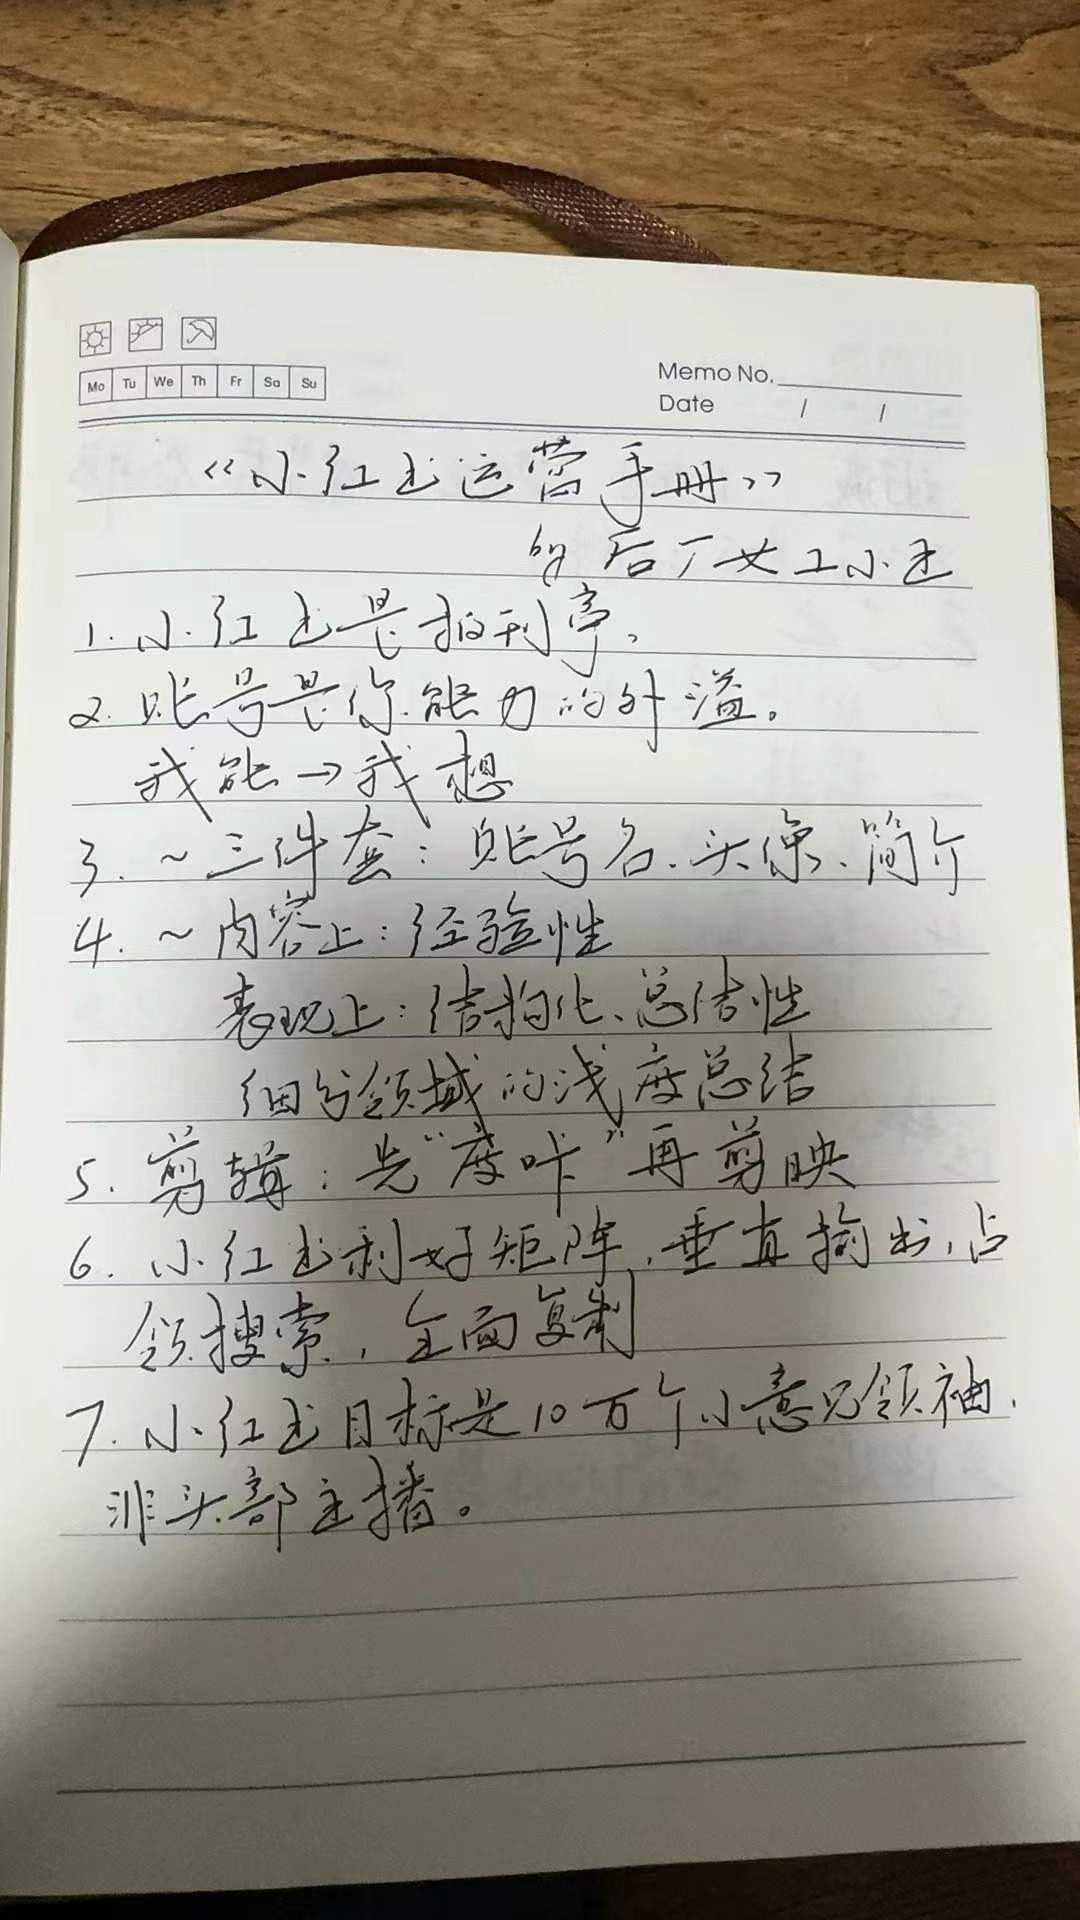 Mo Tu We Th Fr Sa Su
Memo No.
Date / /
《小红书运营手册》
by 后厂女工小书
1. 小红书是报刊亭。
2. 账号是你能力的外溢。
我能→我想
3. ~三件套：账号名、头像、简介
4. ~内容上：经验性
表现上：结构化、总结性
细分领域的浅度总结
5. 剪辑：先“度咔”再剪映
6. 小红书利好矩阵，垂直输出，占
领搜索，全面复制
7. 小红书目标是10万个小意见领袖，
非头部主播。